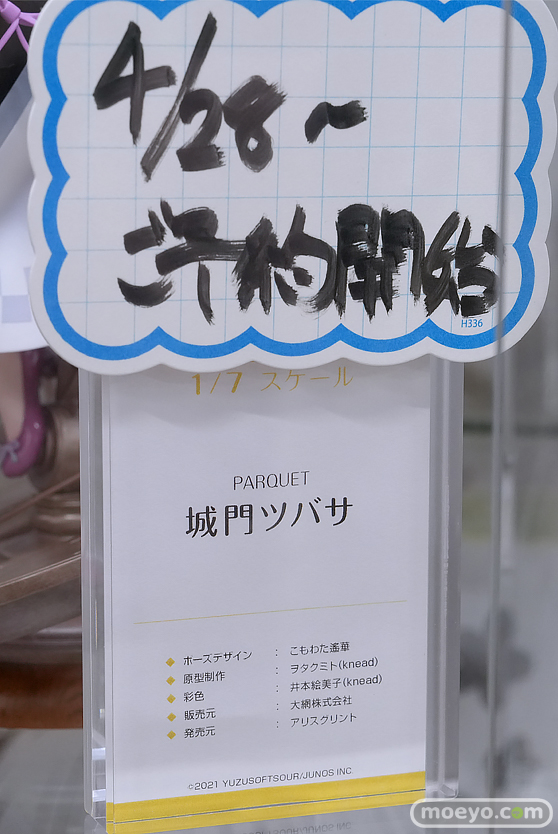 4/28～
ご予約開始
H336
1/7 スケール
PARQUET
城門ツバサ
◆ ポーズデザイン : こもわた遙華
◆ 原型制作 : ヲタクミト(knead)
◆ 彩色 : 井本絵美子(knead)
◆ 販売元 : 大網株式会社
◆ 発売元 : アリスグリント
©2021 YUZUSOFTSOUR/JUNOS INC.
moeyo.com